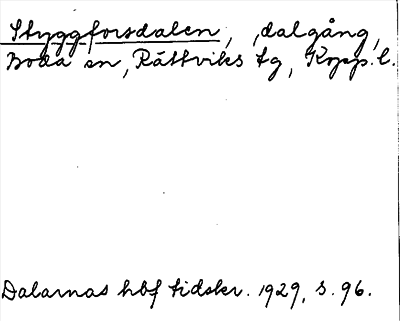 Styggforsdalen, dalgång,
Boda sn, Rättviks tg, Kopp. l.
Dalarnas hbf tidskr. 1929, s. 96.